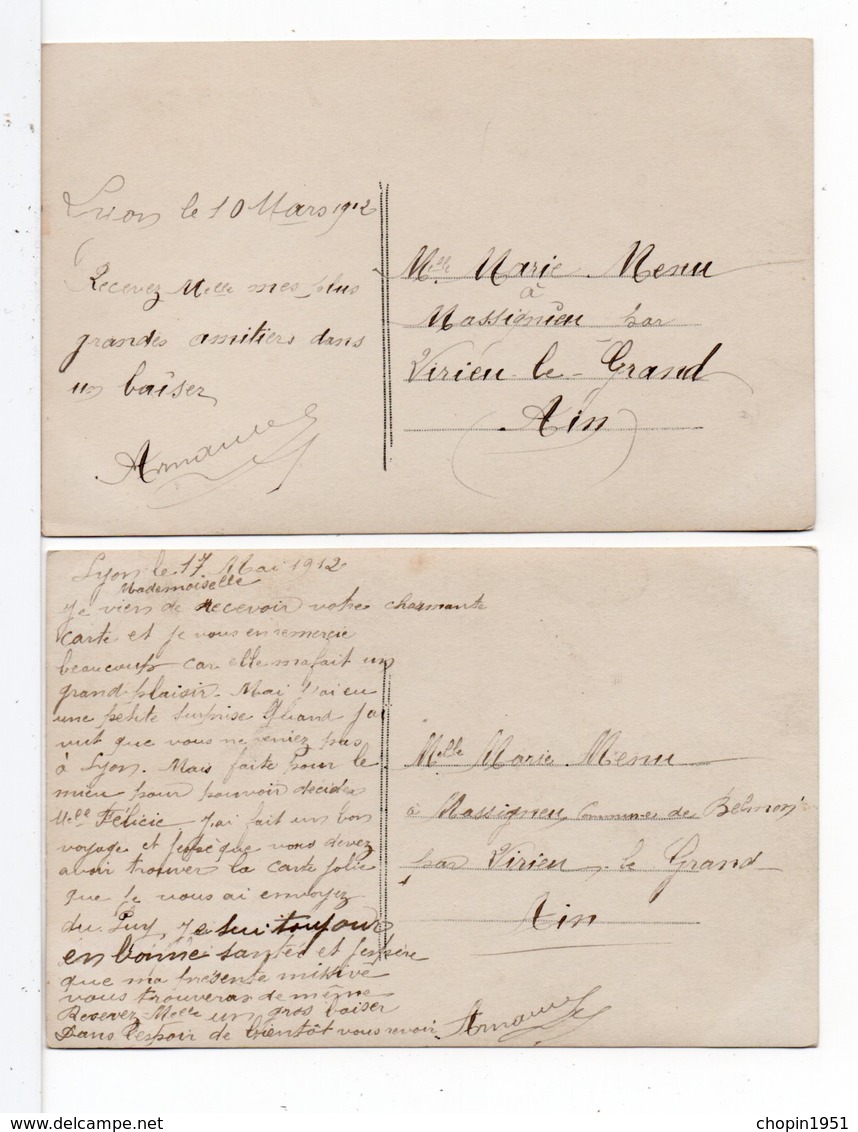 Lyon le 10 Mars 1912
Recevez Melle mes plus
grandes amitiers dans
un baiser
Melle Marie Menu
à
Massignieu par
Virieu-le-Grand
Ain
Lyon le 17 Mai 1912
Mademoiselle
Je viens de recevoir votre charmante
carte et je vous en remercie
beaucoup car elle ma fait un
grand plaisir. Mai j'ai eu
une petite surprise quand j'ai
vut que vous ne veniez pas
à Lyon. Mais faite pour le
mieu pour pouvoir décider
Melle Félicie J'ai fait un bon
voyage et pense que vous devez
avoir trouver la carte jolie
que je vous ai envoyez
du Puy, Je sui toujour
en bonne santée et j'espère
que ma présente misive
vous trouveras de même
Recevez Melle un gros baiser
Dans l'espoir de bientôt vous revoir
Melle Marie Menu
à Massignieu commune de
par Virieu-le Grand
Ain
chopin1951